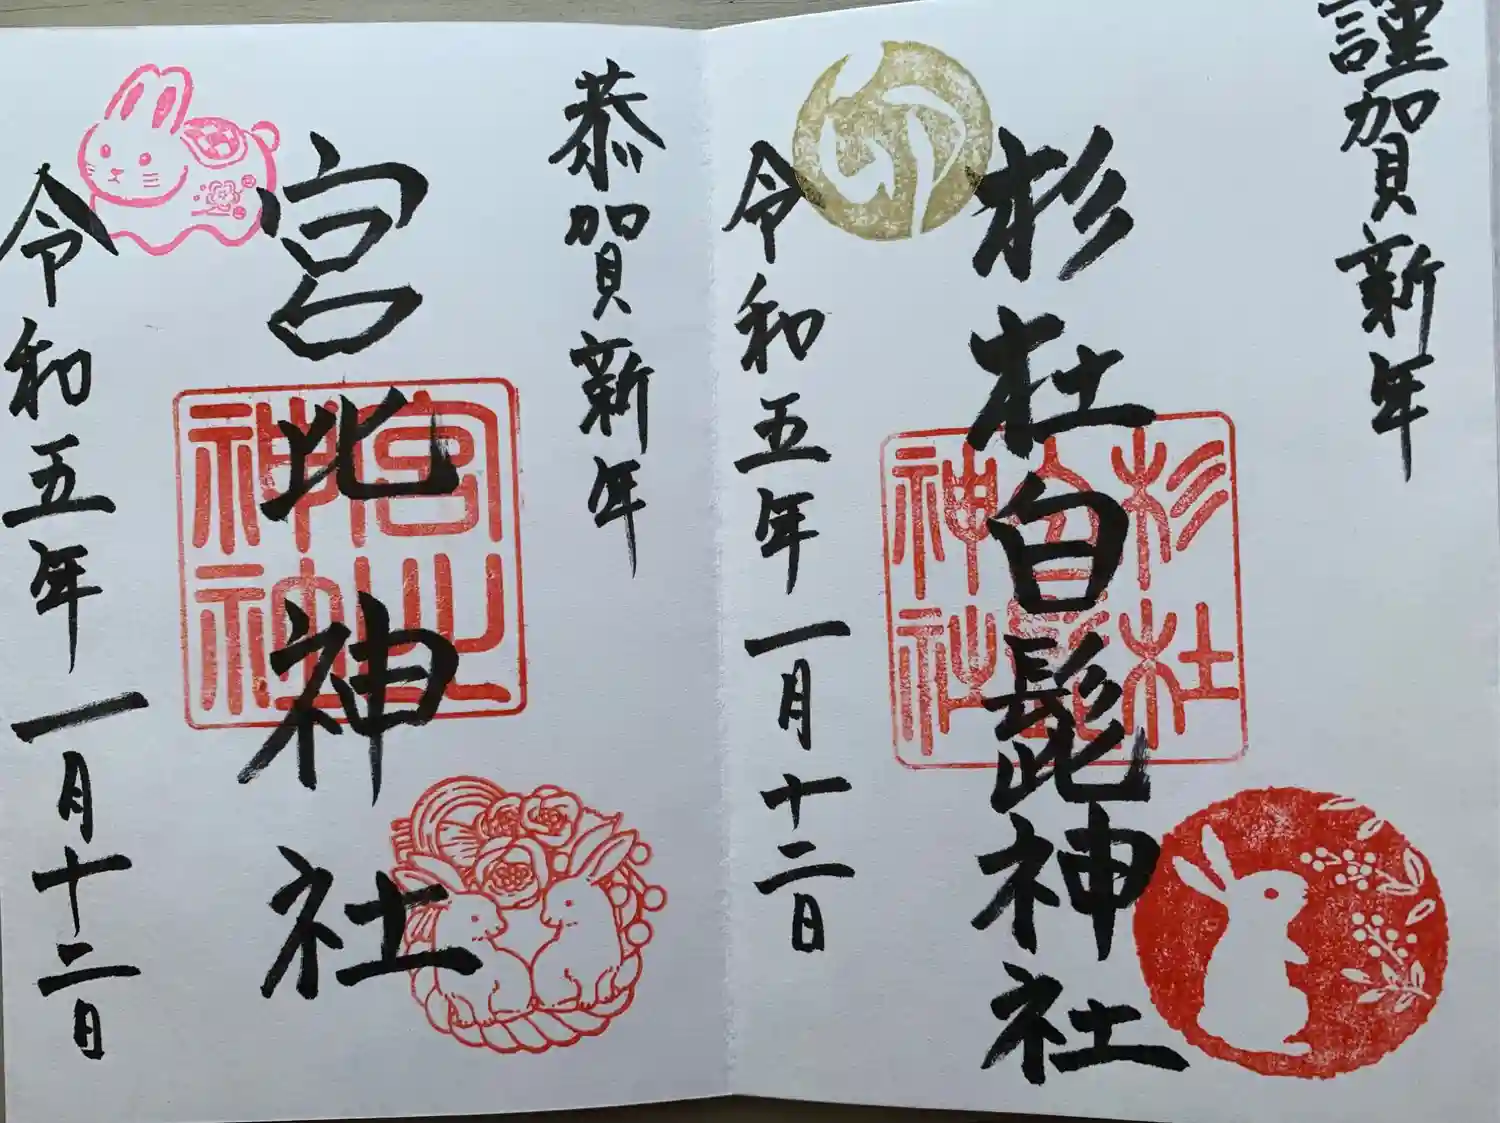 謹賀新年
杉杜白髭神社
杉杜
白髭
神社
卯
令和五年一月十二日
恭賀新年
宮北神社
宮北
神社
令和五年一月十二日